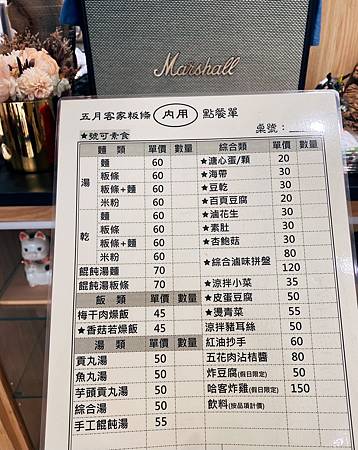 Marshall
五月客家粄條 內用 點餐單
★號可素食
桌號：
麵 類 單價 數量
湯 麵 60
粄條 60
粄條+麵 60
米粉 60
乾 麵 60
粄條 60
粄條+麵 60
米粉 60
餛飩湯麵 70
餛飩湯粄條 70
飯 類 單價 數量
梅干肉燥飯 45
★香菇若燥飯 45
湯 類 單價 數量
貢丸湯 50
魚丸湯 50
芋頭貢丸湯 50
綜合湯 50
手工餛飩湯 55
綜合類 單價 數量
★溏心蛋/顆 20
★海帶 30
★豆乾 30
★百頁豆腐 30
★滷花生 30
★素肚 30
★杏鮑菇 30
★綜合滷味拼盤 80
120
★涼拌小菜 35
★皮蛋豆腐 50
★燙青菜 55
涼拌豬耳絲 50
紅油抄手 60
五花肉沾桔醬 80
炸豆腐(假日限定) 50
哈客炸雞(假日限定) 150
飲料(按品項計價)